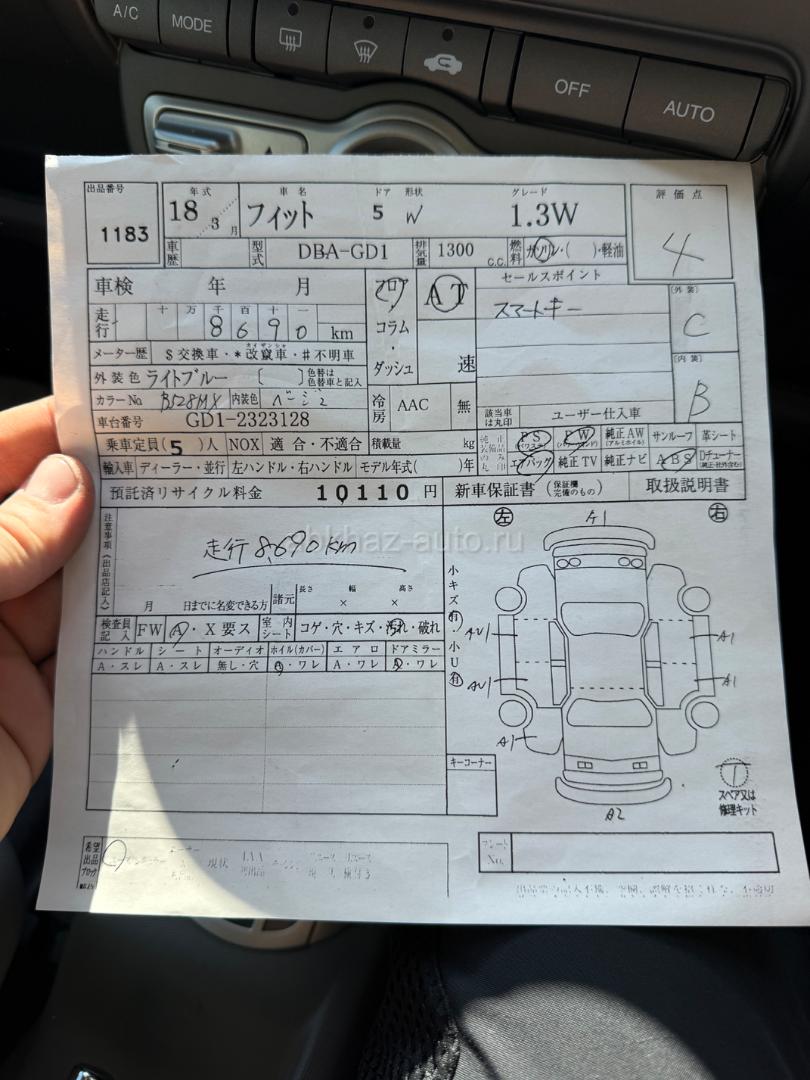 A/C MODE OFF AUTO
出品番号 年式 車名 ドア 形状 グレード 評価点
1183 18 3月 フィット 5 W 1.3W 4
車歴 型式 DBA-GD1 排気量 1300 c.c. 燃料 ガソリン・( )・軽油
車検 年 月 フロア AT セールスポイント [外装]
スマートキー C
走行 十 万 千 百 十 一 コラム
8 6 9 0 km ・
メーター歴 $交換車・*改竄車・#不明車 ダッシュ 速 [内装]
カイザンシャ
外装色 ライトブルー [ ] 色替は色替車と記入 B
カラーNo B528MX 内装色 ベージュ 冷房 AAC 無 該当車は丸印 ユーザー仕入車
車台番号 GD1-2323128
乗車定員(5)人 NOX 適合・不適合 積載量 kg PS (パワステ) PW 純正AW (アルミホイル) サンルーフ 革シート
輸入車 ディーラー・並行 左ハンドル・右ハンドル モデル年式( )年 エアバッグ 純正TV 純正ナビ ABS Dチューナー (純正・社外含む)
預託済リサイクル料金 10110 円 新車保証書 (保証欄完備のもの) 取扱説明書
注意事項(出品店記入) 左 A1 右
走行 8,690km
bkhaz-auto.ru
小キズ有・小U有
月 日までに名変できる方 諸元 長さ × 幅 × 高さ
検査員記入 FW A・X要ス 室内シート コゲ・穴・キズ・汚れ・破れ AU1 A1
ハンドル シート オーディオ ホイル(カバー) エアロ ドアミラー
A・スレ A・スレ 無し・穴 A・ワレ A・ワレ A・ワレ AU1 A1
A1
キーコーナー
T
スペア又は
修理キット
A2
希望出品ブロック 現状
プレートNo.